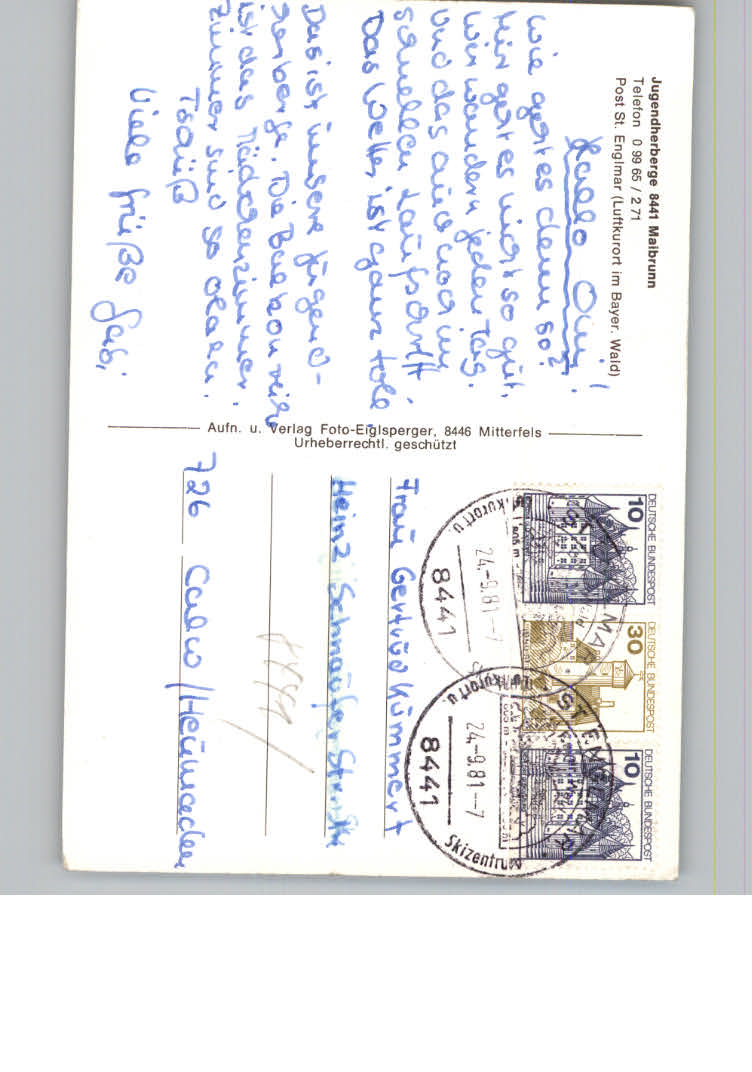 Jugendherberge 8441 Maibrunn
Telefon 0 99 65 / 2 71
Post St. Englmar (Luftkurort im Bayer. Wald)
Hallo Omi!
wie geht es denn so?
Mir geht es nicht so gut,
wir wandern jeden Tag.
und das auch noch im
schnellen Laufschritt.
Das Wetter ist ganz toll.
Das ist unsere Jugend-
herberge. Die Balkon
ist das Mädchenzimmer.
Zimmer sind so
Tschüß
Viele Grüße Gabi
Aufn. u. Verlag Foto-Eiglsperger, 8446 Mitterfels
Urheberrechtl. geschützt
DEUTSCHE BUNDESPOST
10
DEUTSCHE BUNDESPOST
30
DEUTSCHE BUNDESPOST
10
ST. ENGLMAR
Luftkurort u.
24.-9.81-7
8441
ST. ENGLMAR
Luftkurort u.
24.-9.81-7
8441
Skizentrum
Frau Gertrud Kümmert
Heinz Schnaufer Str.
726 Calw/Heumaden